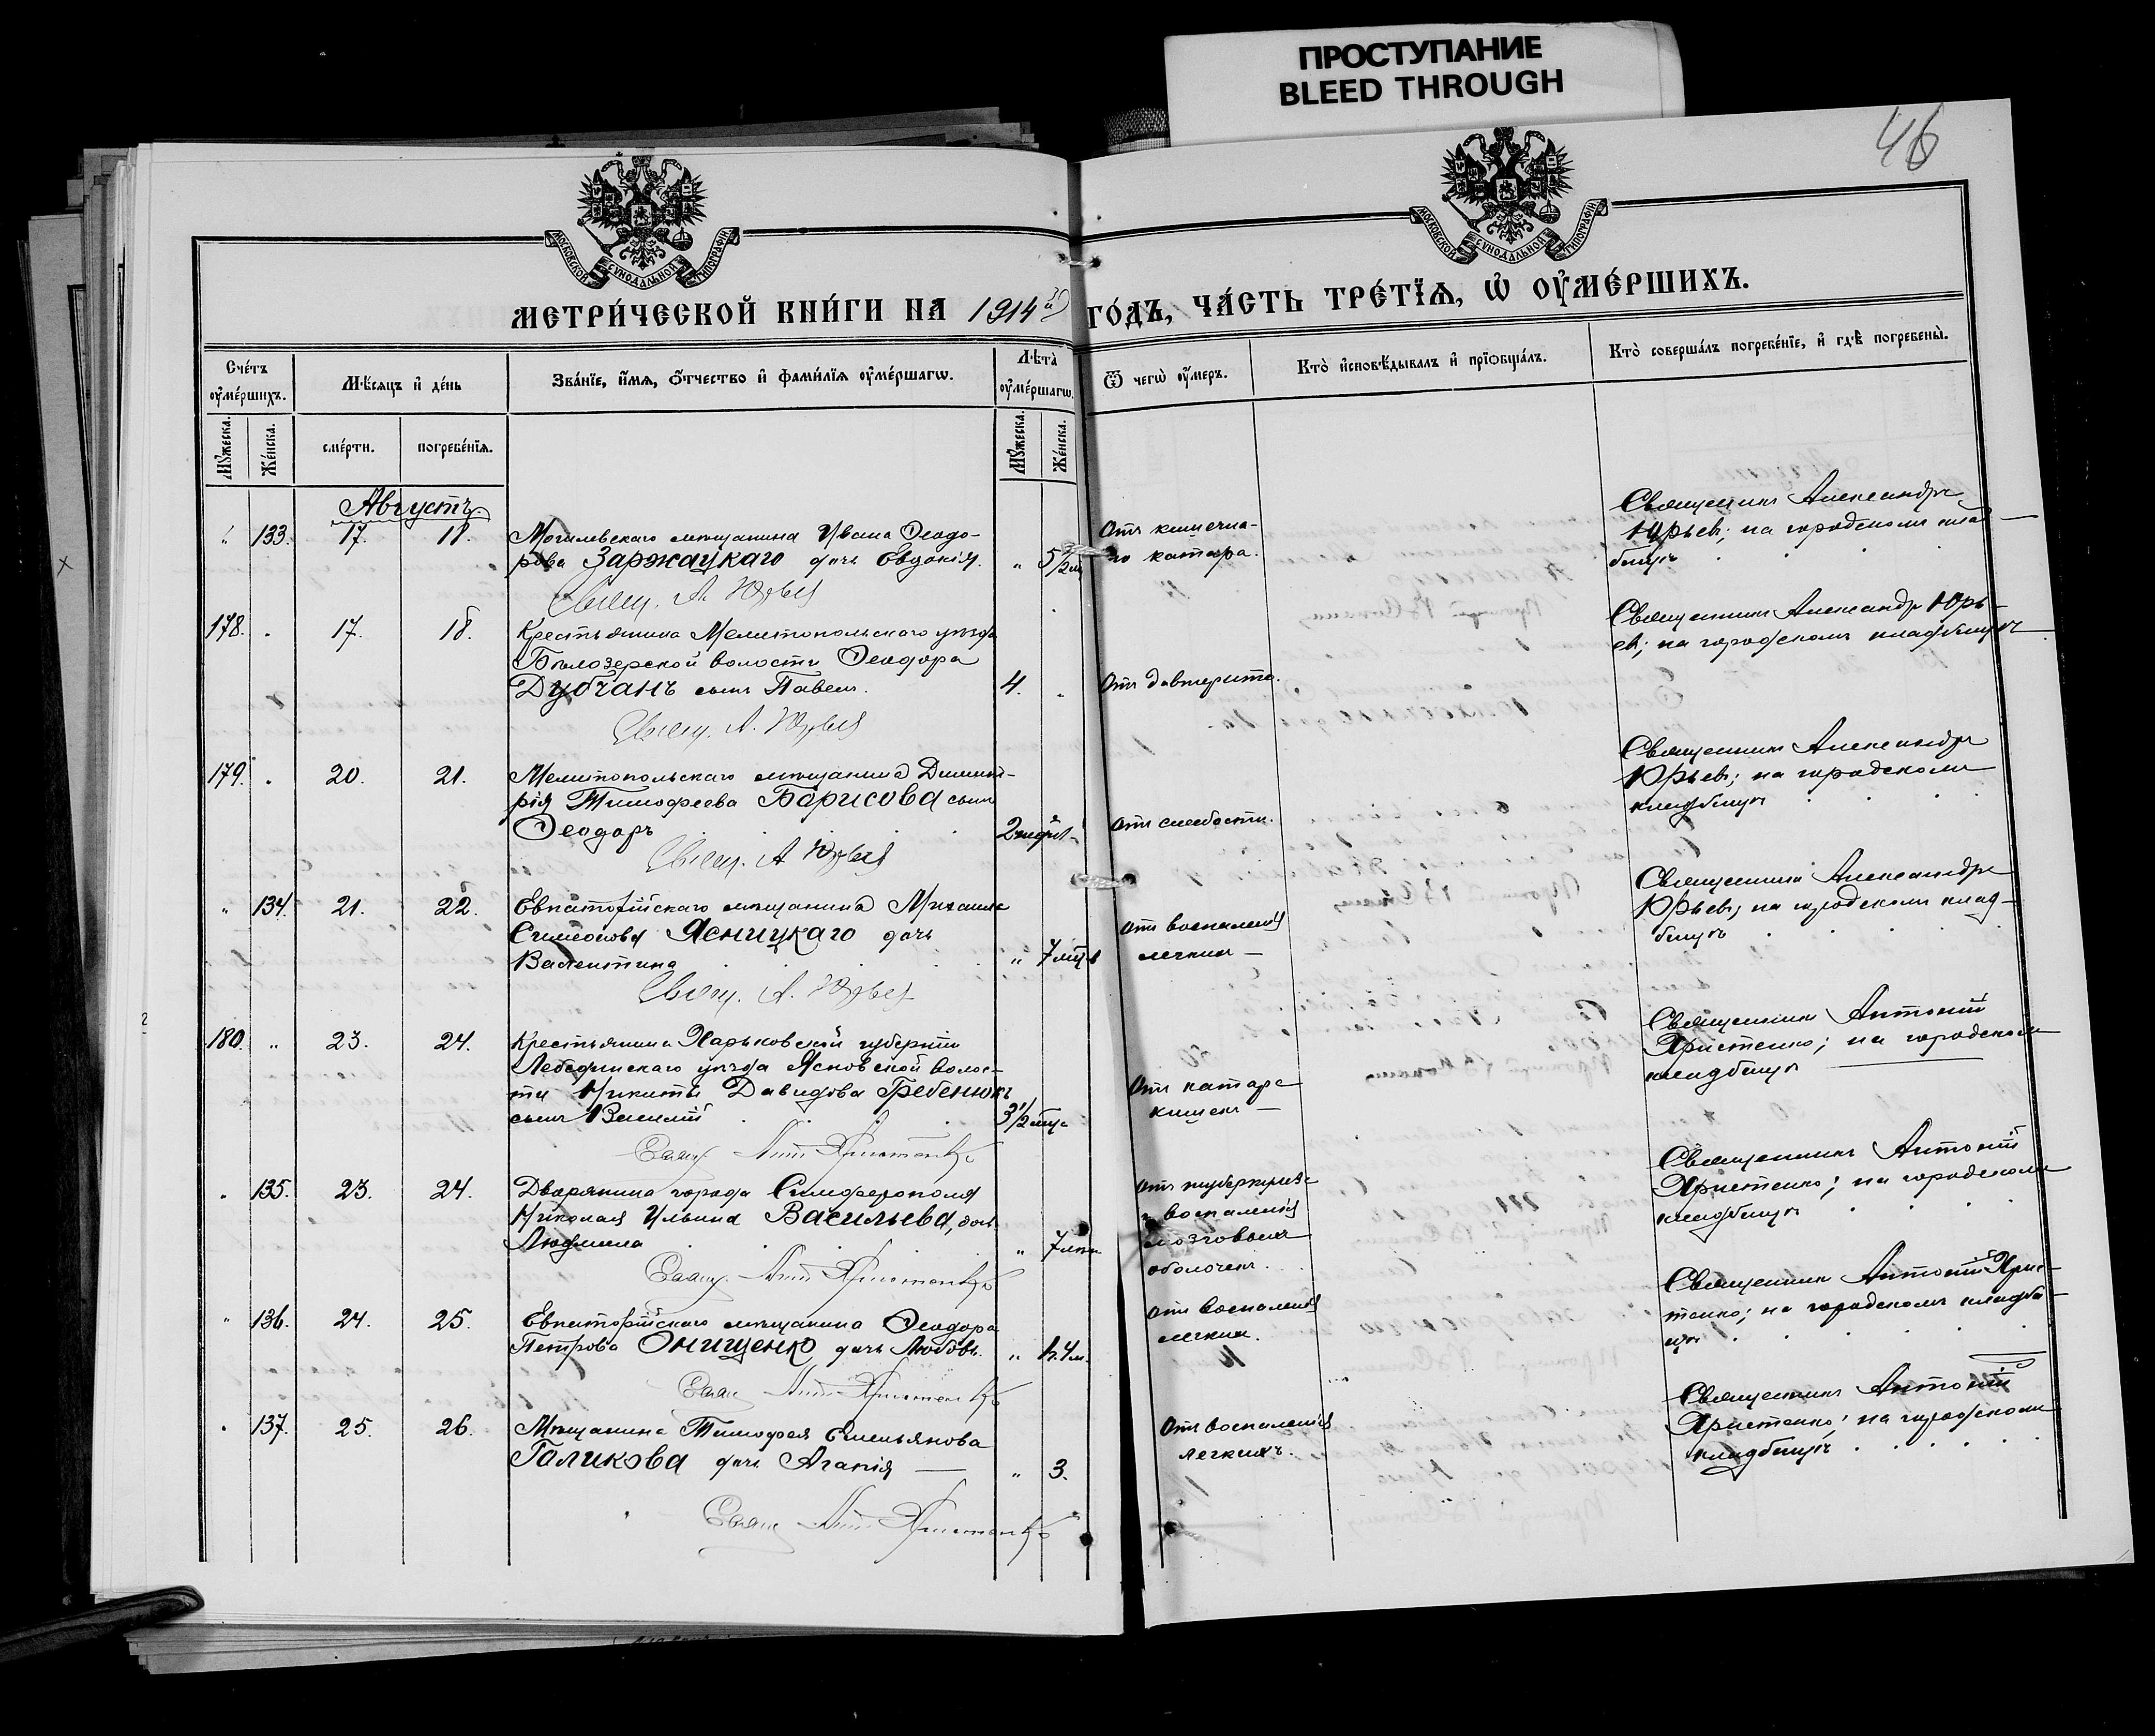 ПРОСТУПАНИЕ
BLEED THROUGH
46
МОСКОВСКОЙ СѴНОДАЛЬНОЙ ТИПОГРАФІИ
МОСКОВСКОЙ СѴНОДАЛЬНОЙ ТИПОГРАФІИ
МЕТРИ́ЧЕСКОЙ КНИ́ГИ НА 1914й ГО́ДЪ, ЧА́СТЬ ТРЕ́ТЇѦ, Ѡ҆ ОУ҆МЕ́РШИХЪ.
Сче́тъ оу҆ме́ршихъ.
Мѣ́сѧцъ и҆ де́нь
Зва́нїе, и҆́мѧ, ѻ҆́тчество и҆ фами́лїѧ оу҆ме́ршагѡ.
Лѣ̀та оу҆ме́ршагѡ.
Ѿ чегѡ̀ оу҆́меръ.
Кто̀ и҆сповѣ́дывалъ и҆ прїѡбща́лъ.
Кто̀ соверша́лъ погребе́нїе, и҆ гдѣ̀ погребены̀.
Мꙋ́жеска.
Же́нска.
сме́рти.
погребе́нїѧ.
Мꙋ́жеска.
Же́нска.
Августъ.
" 133. 17. 18. Могилевскаго мѣщанина Ивана Ѳеодо-
рова Заржацкаго дочь Евдокія. "
Свящ. А. Юрьевъ
Отъ кишечна-
го катара.
Священникъ Александръ
Юрьевъ; на городскомъ клад-
бищѣ
178. . 17. 18. Крестьянина Мелитопольскаго уѣзда
Бѣлозерской волости Ѳеодора
Дубчанъ сынъ Павелъ. 4. .
Свящ. А. Юрьевъ
Отъ дифтерита.
Священникъ Александръ Юрь-
евъ; на городскомъ кладбищѣ
179. . 20. 21. Мелитопольскаго мѣщанина Димит-
рія Тимофеева Борисова сынъ
Ѳеодоръ
Свящ. А. Юрьевъ
Отъ слабости.
Священникъ Александръ
Юрьевъ; на городскомъ
кладбищѣ
" 134. 21. 22. Евпаторійскаго мѣщанина Михаила
Симеонова Ясницкаго дочь
Валентина " 7 мцв
Свящ. А. Юрьевъ
Отъ воспаленія
легкихъ —
Священникъ Александръ
Юрьевъ; на городскомъ клад-
бищѣ
180. " 23. 24. Крестьянина Харьковской губерніи
Лебединскаго уѣзда Ясновской волос-
ти Никиты Давидова Гребенюкъ
сынъ Василій 3½ мца
Свящ. Ант. Христенко
Отъ катара
кишекъ —
Священникъ Антоній
Христенко; на городскомъ
кладбищѣ
. 135. 23. 24. Дворянина города Симферополя
Николая Ильина Васильева, дочь
Людмила "
Свящ. Ант. Христенко
воспаленія
мозговыхъ
оболочекъ.
Священникъ Антоній
Христенко; на городскомъ
кладбищѣ
" 136. 24. 25. Евпаторійскаго мѣщанина Ѳеодора
Петрова Онищенко дочь Любовь. "
Свящ. Ант. Христенко
Отъ воспаленія
легкихъ.
Священникъ Антоній Хрис-
тенко; на городскомъ кладби-
щѣ
. 137. 25. 26. Мѣщанина Тимофея Емельянова
Галикова дочь Агапія — " 3.
Свящ. Ант. Христенко
Отъ воспаленія
легкихъ.
Священникъ Антоній
Христенко; на городскомъ
кладбищѣ